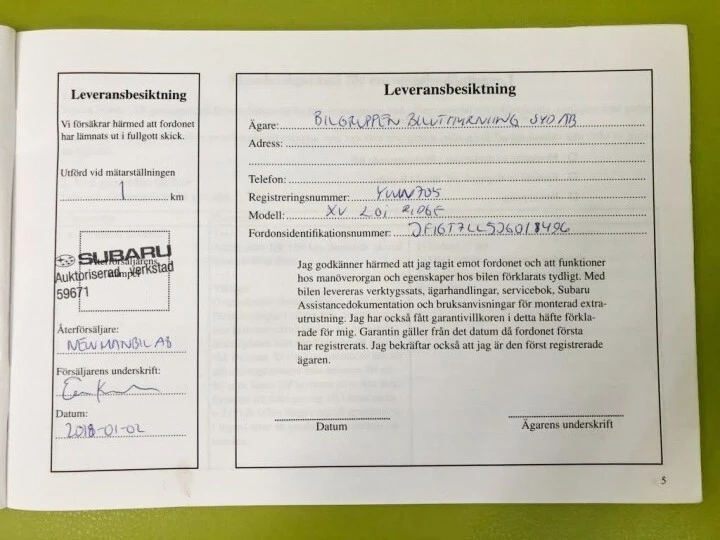 Leveransbesiktning
Vi försäkrar härmed att fordonet
har lämnats ut i fullgott skick.
Utförd vid mätarställningen
1 km
SUBARU
Återförsäljarens
Auktoriserad verkstad
stämpel
59671
Återförsäljare:
NEWMANBIL AB
Försäljarens underskrift:
Datum:
2018-01-02
Leveransbesiktning
Ägare: BILGRUPPEN BILUTHYRNING SYD AB
Adress:
Telefon:
Registreringsnummer:
Modell: XV 2.0i RIDGE
Fordonsidentifikationsnummer:
Jag godkänner härmed att jag tagit emot fordonet och att funktioner
hos manöverorgan och egenskaper hos bilen förklarats tydligt. Med
bilen levereras verktygssats, ägarhandlingar, servicebok, Subaru
Assistancedokumentation och bruksanvisningar för monterad extra-
utrustning. Jag har också fått garantivillkoren i detta häfte förkla-
rade för mig. Garantin gäller från det datum då fordonet första
har registrerats. Jag bekräftar också att jag är den först registrerade
ägaren.
Datum
Ägarens underskrift
5